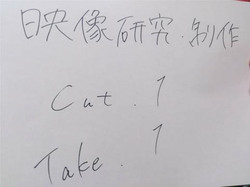 映像研究.制作
Cut. 1
Take. 1